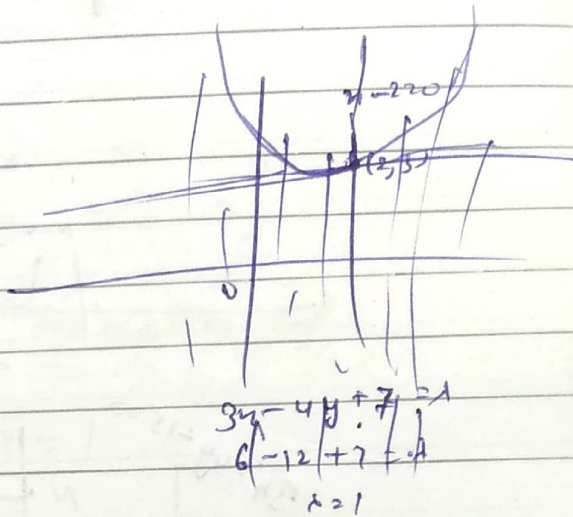 x-2=0
(2,3)
0 1
3x - 4y + 7 = λ
6 - 12 + 7 = λ
λ = 1